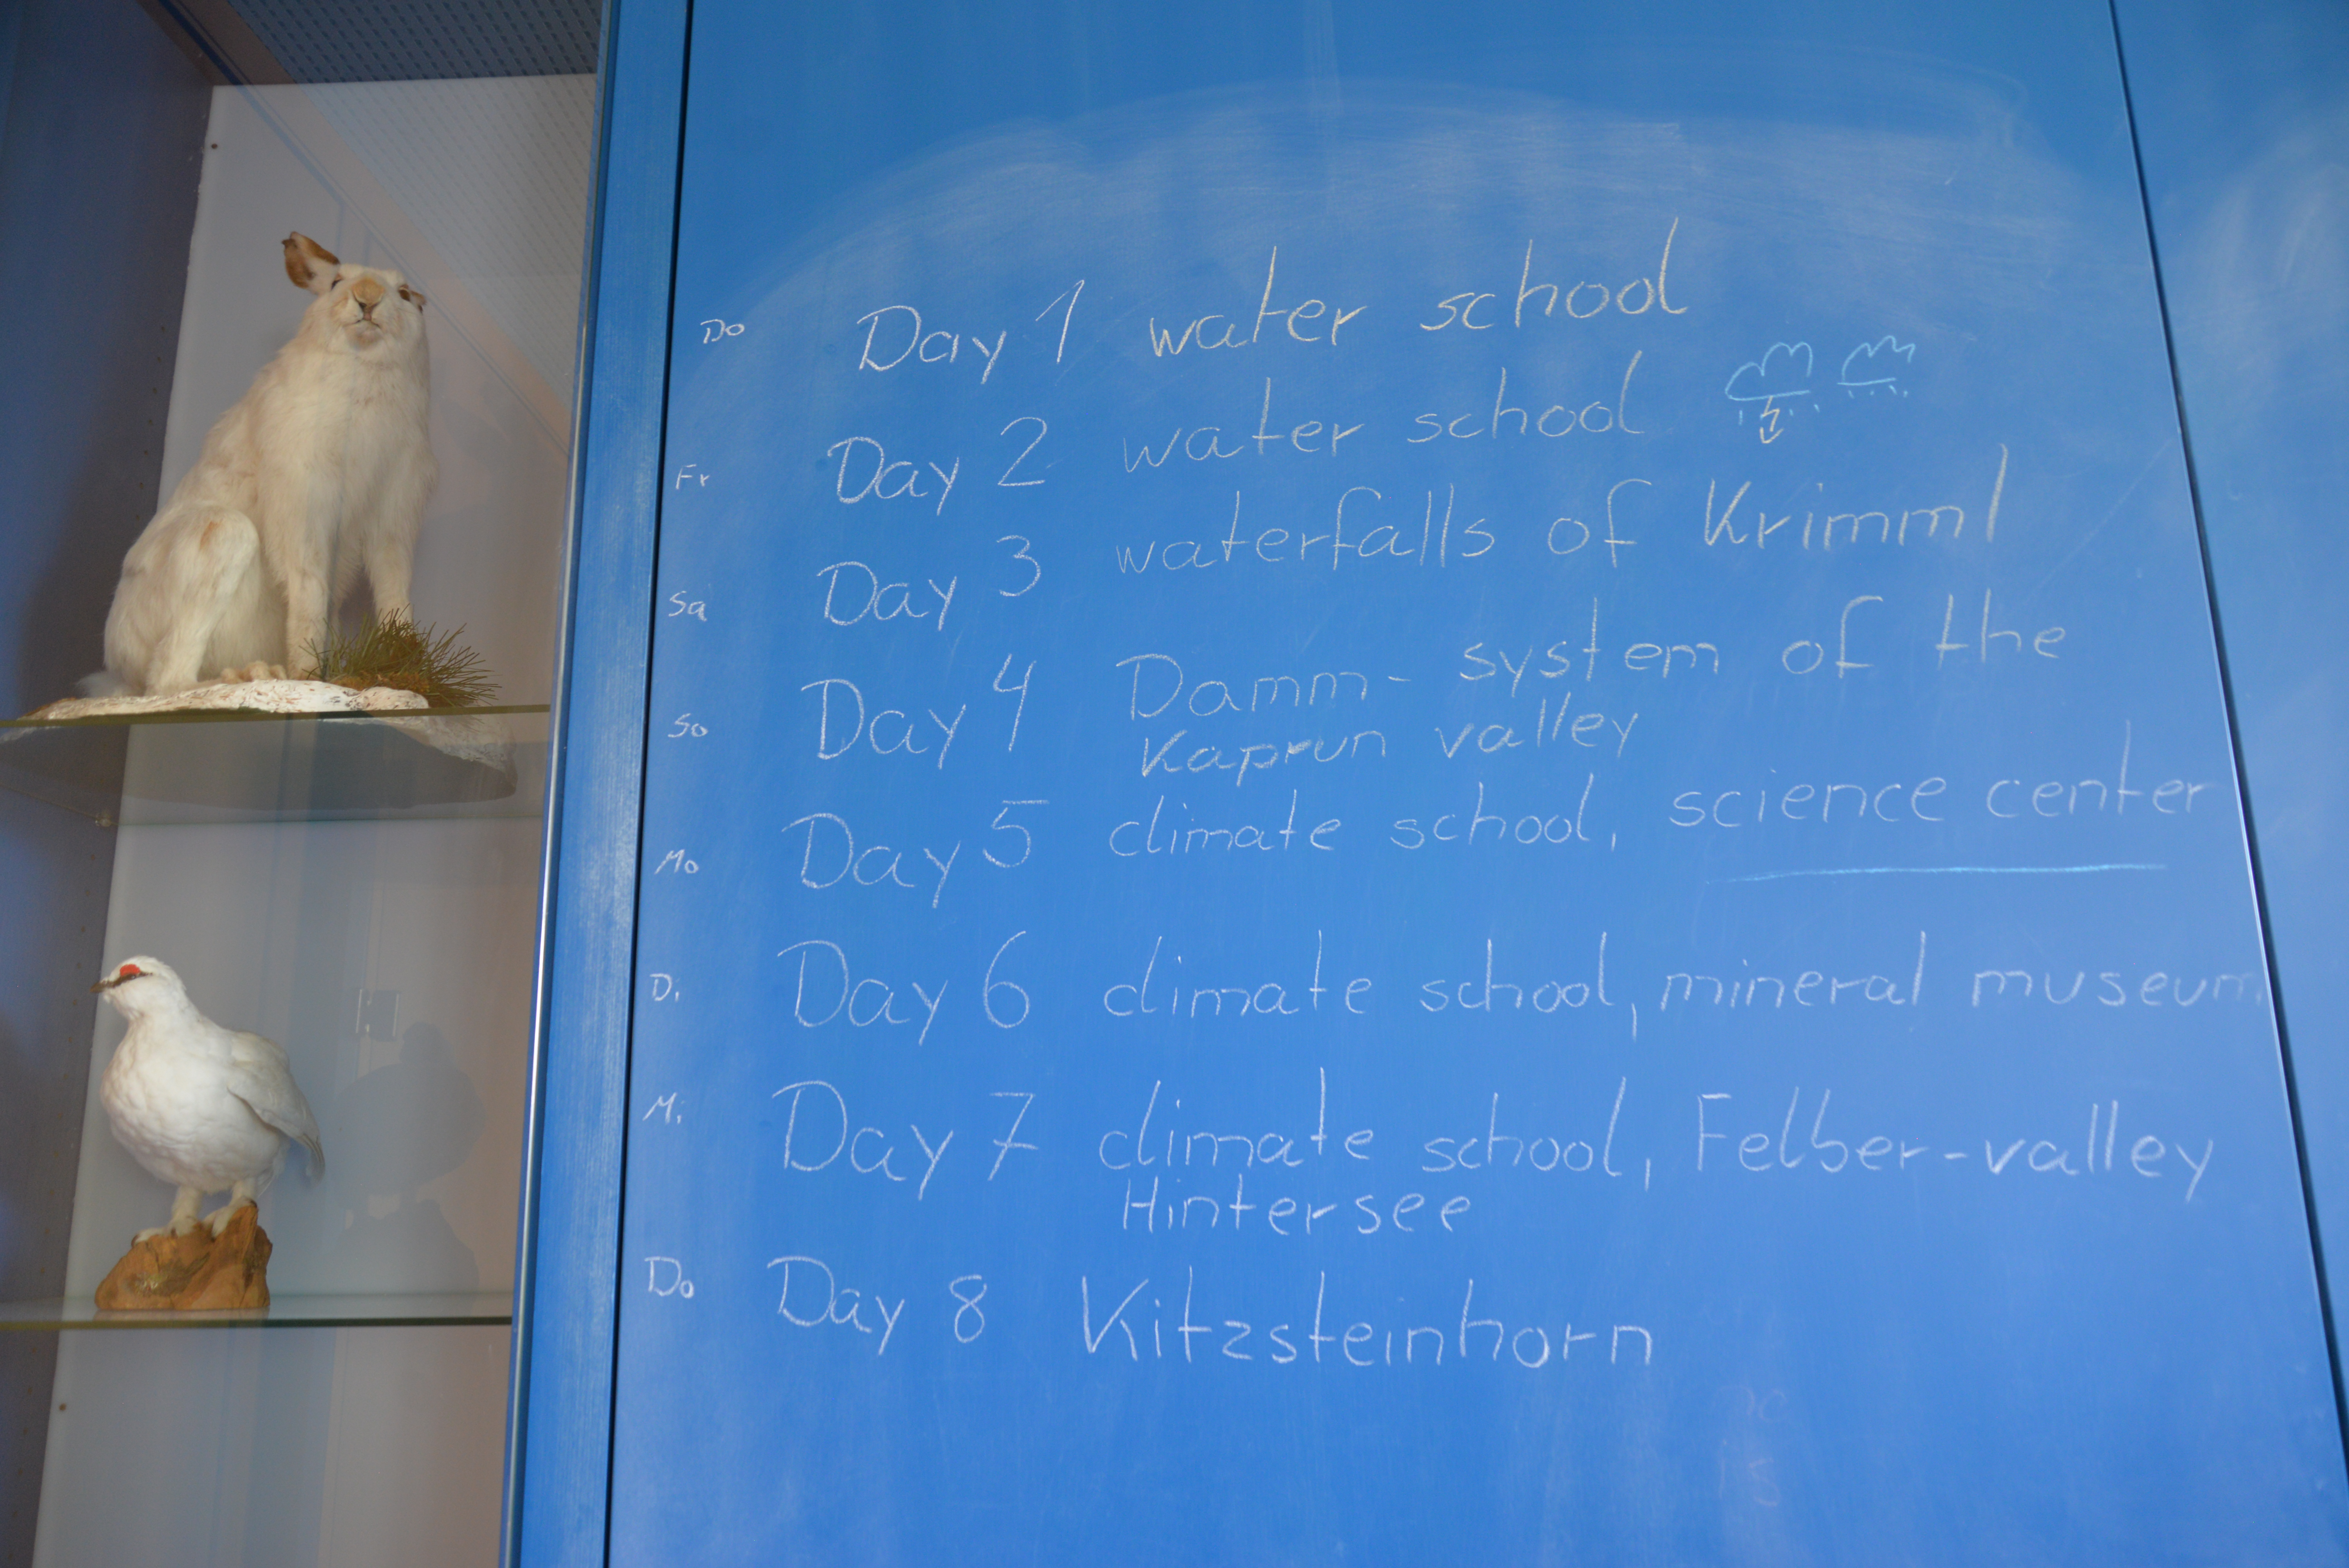 Do Day 1 water school
Fr Day 2 water school
Sa Day 3 waterfalls of Krimml
So Day 4 Damm- system of the
Kaprun valley
Mo Day 5 climate school, science center
Di Day 6 climate school, mineral museum
Mi Day 7 climate school, Felber-valley
Hintersee
Do Day 8 Kitzsteinhorn